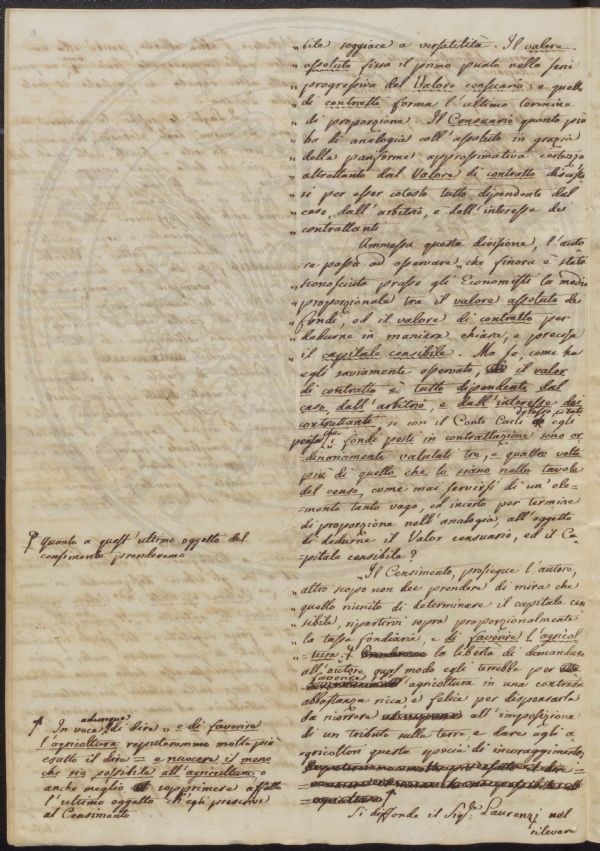 „ bile soggiace a versatilità. Il valore
„ assoluto fissa il primo punto nella serie
„ progressiva del Valore censuario: e quello
„ di contratto forma l'ultimo termine
„ di proporzione. Il Censuario quanto più
„ ha di analogia coll'assoluto in grazia
„ della
„ altrettanto dal Valore di contratto discosta
„ si per esser cotesto tutto dipendente dal
„ caso, dall'arbitrio, e dall'interesse dei
„ contrattanti
Ammessa questa divisione, l'auto
re passa ad osservare „ che finora è stata
„ sconosciuta presso gli Economisti la media
„ proporzionale tra il valore assoluto dei
„ fondi, ed il valore di contratto per
„ dedurne in maniera chiara, e precisa
„ il capitale censibile. Ma se, come ha
egli saviamente osservato, il valor
di contratto è tutto dipendente dal
caso, dall'arbitrio, e dall'interesse dei
contrattanti, se con il Conte Carli
egli
pensa che i fondi posti in contrattazione sono or
=dinariamente valutati tre, e quattro volte
più di quello che lo siano nelle tavole
del censo, come mai servirsi di un'ele=
=mento tanto vago, ed incerto per termine
di proporzione nell'analogia, all'oggetto
di dedurne il Valor censuario, ed il Ca=
pitale censibile?
„ Il Censimento, prosiegue l'autore,
„ altro scopo non dee prendere di mira che
„ quello riunito di determinare il capitale cen
„ sibile, ripartirvi sopra proporzionalmente
„ la tassa fondiaria, e di favorire l'agricol
„ =tura. la libertà di domandare
all'autore qual modo egli terrebbe per
favorire l'agricoltura in una contrada
abbastanza ricca e felice per dispensarla
da ricorrere all'imposizione
di un tributo sulle terre, e dare agli a
gricoltori questa specie di incoraggimento
Si diffonde il Sig.r Laurenzj nel
rilevare
Quanto a quest'ultimo oggetto del
censimento prenderemo
In vece adunque di dire „ e di favorire
l'agricoltura reputeremmo molto più
esatto il dire = e nuocere il meno
che sia possibile all'agricoltura, o
anche meglio sopprimere affatto
l'ultimo oggetto ch'egli prescrive
al Censimento